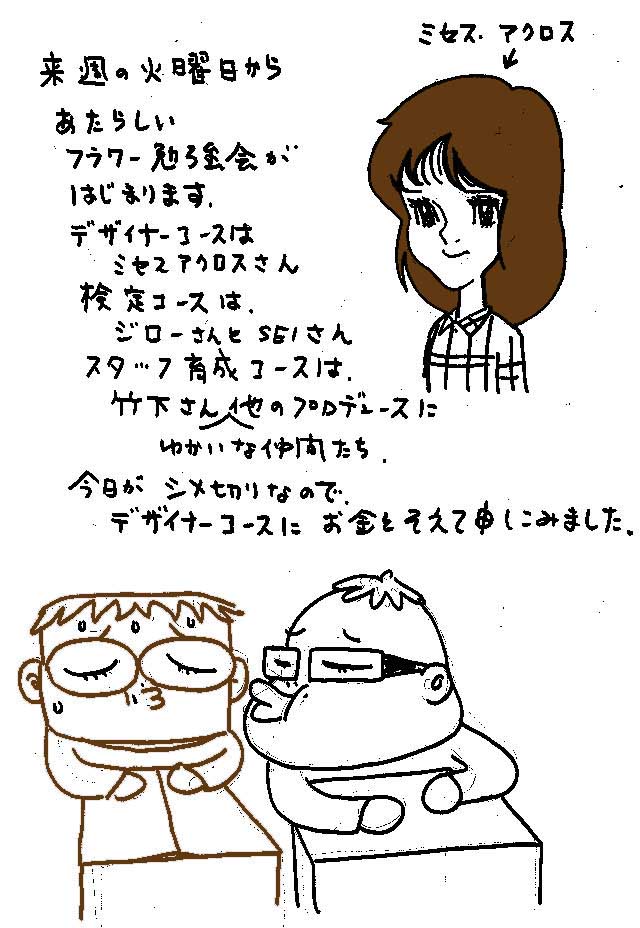 ミセス・アクロス
来週の火曜日から
あたらしい
フラワー勉強会が
はじまります.
デザイナーコースは
ミセスアクロスさん
検定コースは.
ジローさんとSEIさん
スタッフ育成コースは.
竹下さん他のプロデュースに
ゆかいな仲間たち.
今日が シメ切りなので.
デザイナーコースに お金をそえて申しこみました.